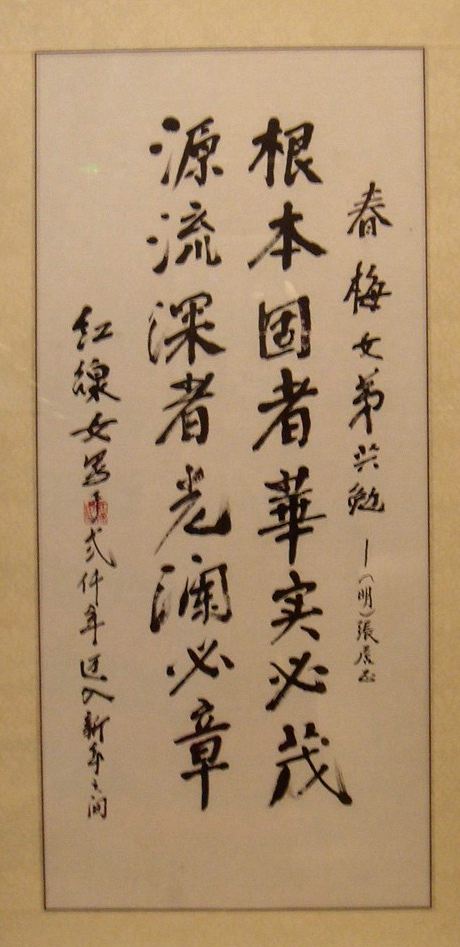 春梅女弟共勉 —（明）張居正
根本固者華实必茂
源流深者光澜必章
红線女寫于弍仟年迈入新年之间